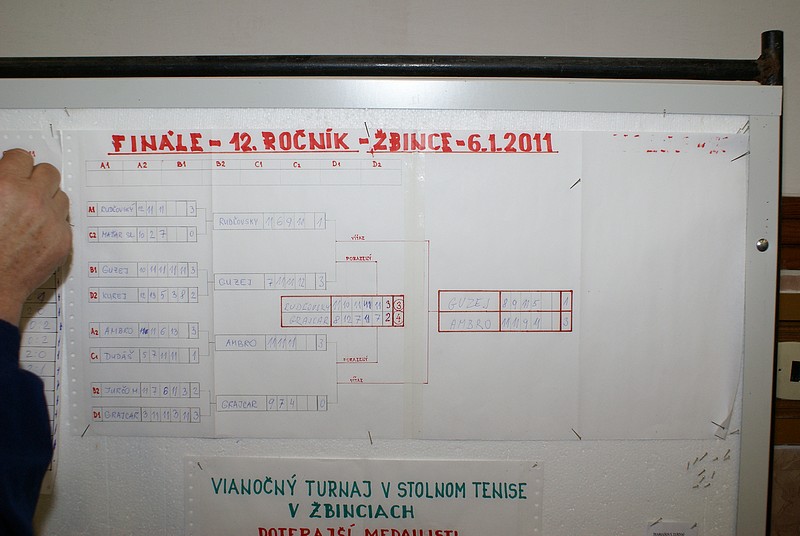 FINÁLE - 12. ROČNÍK - ŽBINCE - 6.1.2011
A1 A2 B1 B2 C1 C2 D1 D2
A1 RUDŇOVSKÝ 12 11 11 3
C2 10 2 7 0
RUDŇOVSKÝ 11 6 9 11 1
VÍŤAZ
PORAZENÝ
B1 GUZEJ 10 11 11 11 11 3
D2 12 13 5 3 8 2
GUZEJ 7 11 11 12 3
RUDŇOVSKÝ 11 10 11 11 11 3 3
GRAJCAR 8 12 7 9 7 2 4
GUZEJ 8 9 11 5 1
AMBRO 11 11 9 11 3
A2 AMBRO 11 6 13 3
C1 DUDÁŠ 5 7 11 11 1
AMBRO 11 11 11 3
PORAZENÝ
VÍŤAZ
B2 JURČO M 11 7 6 11 3 2
D1 GRAJCAR 3 11 11 3 11 3
GRAJCAR 9 7 4 0
0:2
0:2
2:0
VIANOČNÝ TURNAJ V STOLNOM TENISE
V ŽBINCIACH
DOTERAJŠÍ MEDAILISTI